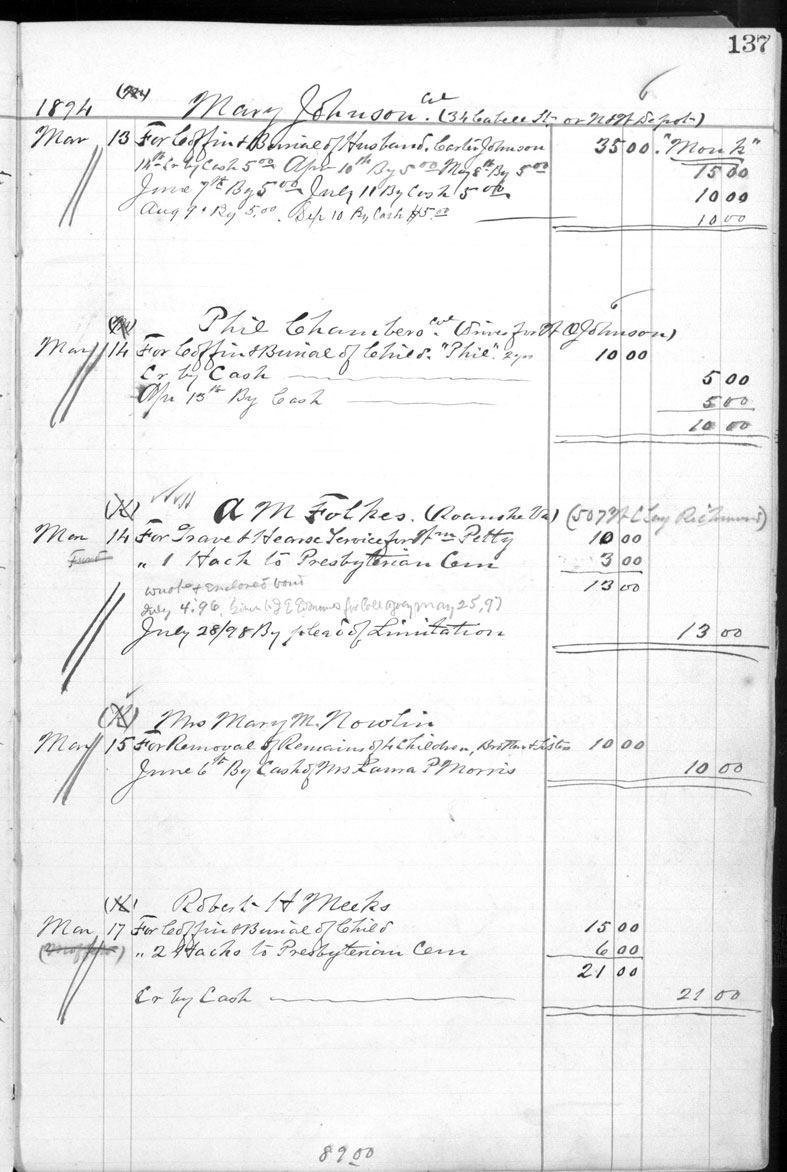 137
1894 Mary Johnson Col. (34 Cabell St. or N&W Depot)
Mar 13 For Coffin & Burial of Husband. Johnson 35 00 "Monk"
14th Cr by Cash 5 00 Apr 10th By 5 00 May 8th By 5 00 15 00
June 7th By 5 00 July 11 By Cash 5 00 10 00
Aug 9 By 5.00. Sep 10 By Cash $5.00 10 00
Phil Chambers Col. (drives for Johnson)
Mar 14 For Coffin & Burial of Child. "Phil". 2yrs 10 00
Cr by Cash 5 00
Apr 13th By Cash 5 00
10 00
A M Folkes. (Roanoke Va) (507 W Clay Richmond)
Mar 14 For Grave & Hearse Service for Wm Petty 10 00
" 1 Hack to Presbyterian Cem 3 00
wrote & enclosed 13 00
July 4.96. for May 25, 97
July 28/98 By of Limitation 13 00
(X) Mrs Mary M. Nowlin
Mar 15 For Removal of Remains of 4 Children, Brother & Sister 10 00
June 6th By Cash of Mrs Laura P Morris 10 00
(X) Robert H Meeks
Mar 17 For Coffin & Burial of Child 15 00
" 2 Hacks to Presbyterian Cem 6 00
21 00
Cr by Cash 21 00
89 00